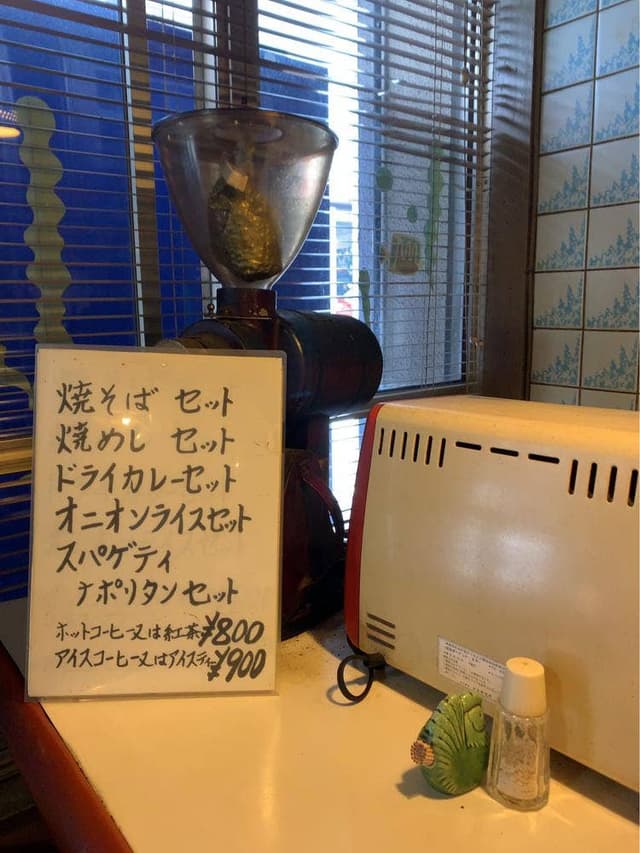 焼そば セット
焼めし セット
ドライカレーセット
オニオンライスセット
スパゲティ
ナポリタンセット
ホットコーヒー又は紅茶¥800
アイスコーヒー又はアイスティー¥900